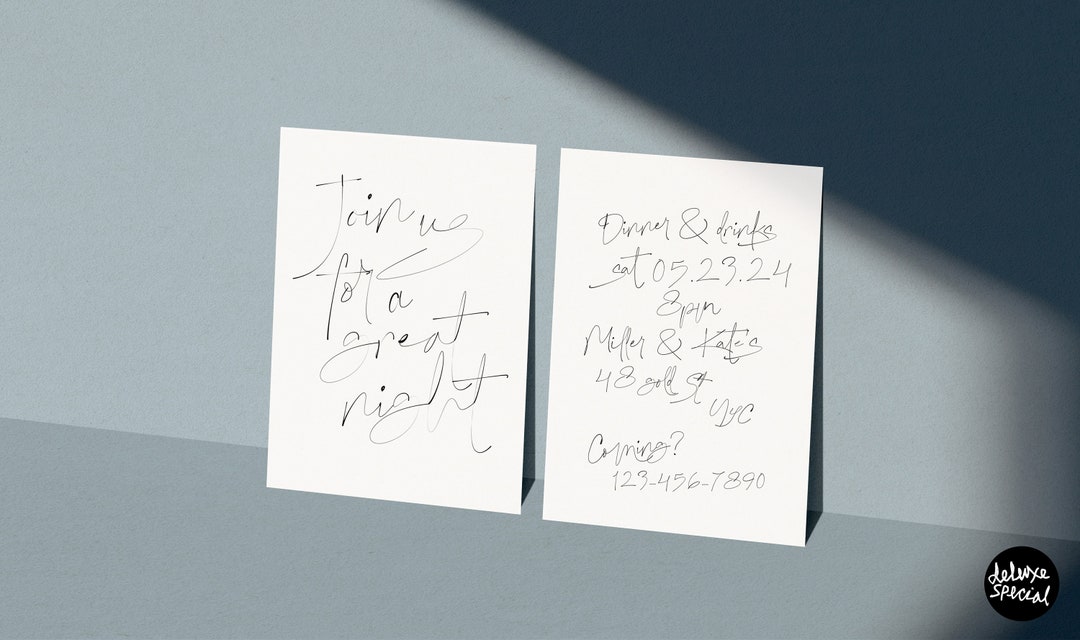 Join us
for a
great
night
Dinner & drinks
sat 05.23.24
8pm
Miller & Kate's
48 gold St
NYC
Coming?
123-456-7890
deluxe
special